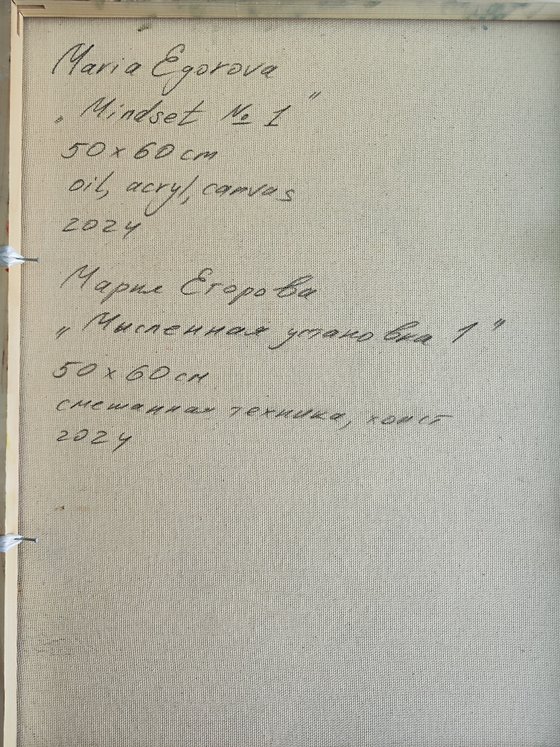 Maria Egorova
„Mindset № 1"
50x60 cm
oil, acryl, canvas
2024
Мария Егорова
„Мысленная установка 1"
50x60 см
смешанная техника, холст
2024